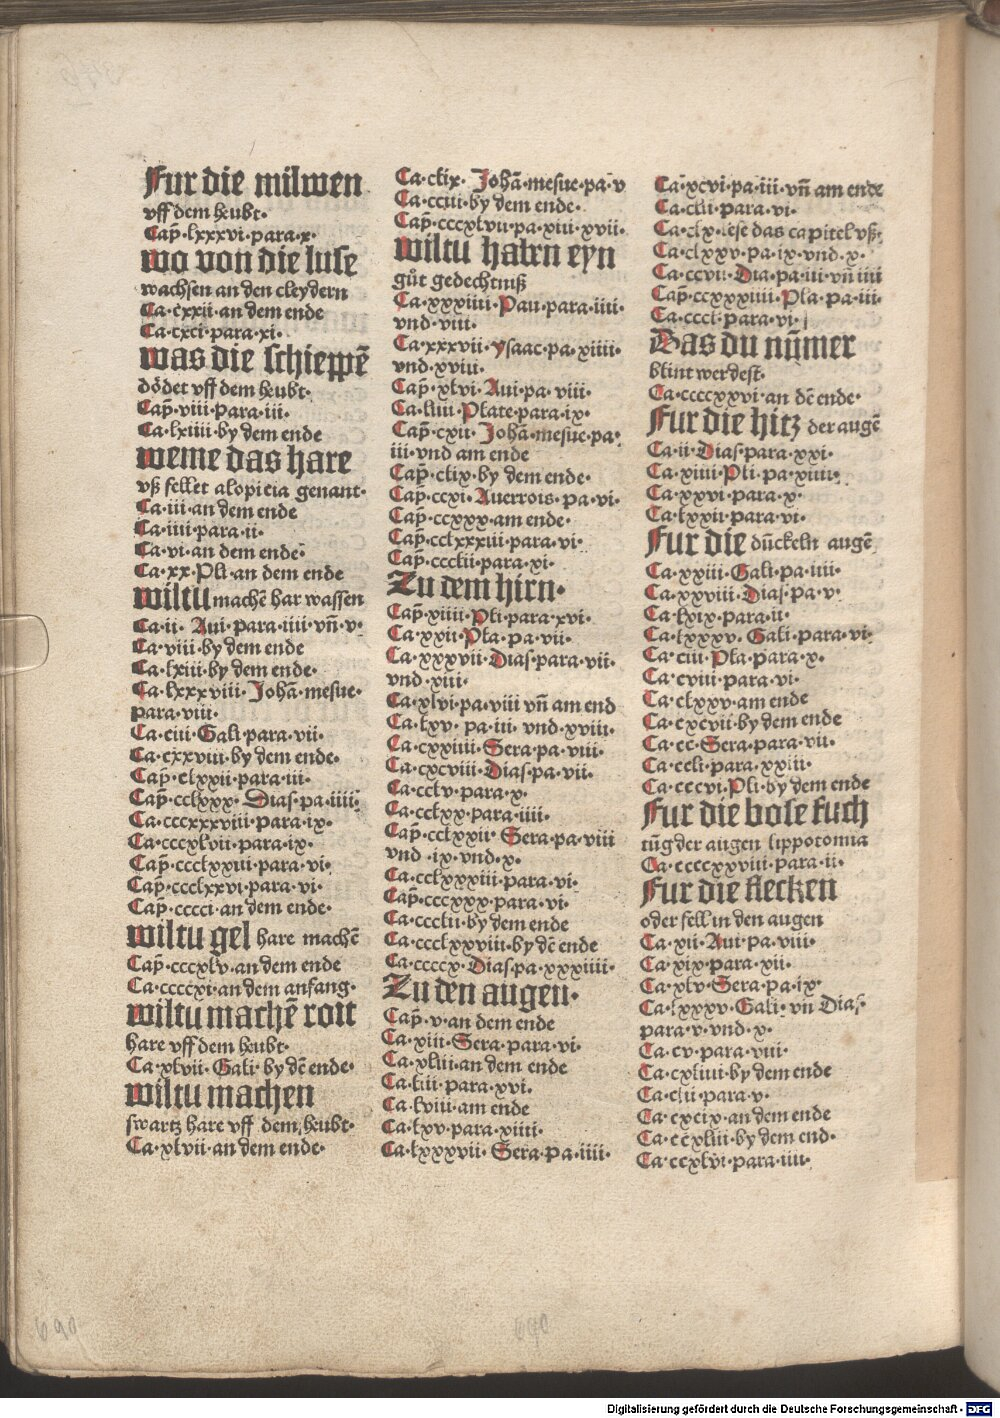 Fur die milwen
vff dem heubt·
Cap̄·lxxxvi·para·x·
wo von die luse
wachsen an den cleydern
Ca·cxxii·an dem ende
Ca·cxci·para·xi·
was die schieppē
dödet vff dem heubt·
Cap̄·viii·para·iii·
Ca·lxiiii·by dem ende
weme das hare
vß fellet alopicia genant·
Ca·iii·an dem ende
Ca·iiii·para·ii·
Ca·vi·an dem ende·
Ca·xx·Pli·an dem ende
wiltu machē har wassen
Ca·ii· Aui·para·iiii·vn̄·v·
Ca·viii·by dem ende
Ca·lxiii·by dem ende·
Ca·lxxxviii·Johā·mesue·
para·viii·
Ca·ciii·Gali·para·vii·
Ca·cxxviii·by dem ende·
Cap̄·clxxii·para·iii·
Cap̄·cclxxx· Dias·pa·iiii·
Ca·cccxxxviii·para·ix·
Ca·cccxlvii·para·ix·
Cap̄·ccclxxiii·para·vi·
Cap̄·ccclxxvi·para·vi·
Cap̄·cccci·an dem ende·
wiltu gel hare machē
Cap̄·cccxlv·an dem ende
Ca·ccccxi·an dem anfang·
wiltu machē roit
hare vff dem heubt·
Ca·xlvii·Gali·by dē ende·
wiltu machen
swartz hare vff dem heubt·
Ca·xlvii·an dem ende·
Ca·clix· Johā·mesue·pa·v
Ca·ccui·by dem ende·
Cap̄·cccxlvii·pa·xiii·xvii·
wiltu haben eyn
gůt gedechtniß
Ca·xxxiiii·Pau·para·iiii·
vnd·viii·
Ca·xxxvii·ysaac·pa·xiiii·
vnd·xviii·
Cap̄·xlvi·Aui·pa·viii·
Ca·liiii·Plate·para·ix·
Cap̄·cxii·Johā·mesue·pa·
iii·vnd am ende
Cap̄·clix·by dem ende·
Cap̄·ccxi·Auerrois·pa·vi·
Cap̄·ccxxx·am ende·
Cap̄·cclxxxiii·para·vi·
Cap̄·ccclii·para·xi·
Zu dem hirn·
Cap̄·xiiii·Pli·para·xvi·
Ca·xxii·Pla·pa·vii·
Ca·xxxvii·Dias·para·vii·
vnd·xiii·
Ca·xlvi·pa·viii vn̄ am end
Ca·lxv· pa·iii· vnd·xviii·
Ca·cxxiiii·Sera·pa·viii·
Ca·cxcviii·Dias·pa·vii·
Ca·cclv·para·x·
Ca·cclxx·para·iiii·
Cap̄·cclxxii·Sera·pa·viii
vnd·ix·vnd·x·
Ca·cclxxxiii·para·vi·
Cap̄·cccxxx·para·vi·
Ca·ccclii·by dem ende
Ca·ccclxxviii·by dē ende
Ca·ccccx·Dias·pa·xxxiiii·
Zu den augen·
Cap̄·v·an dem ende
Ca·xiii·Sera·para·vi·
Ca·xliii·an dem ende
Ca·liii·para·xvi·
Ca·lviii·am ende
Ca·lxv·para·xiiii·
Ca·lxxxvii· Sera·pa·iiii·
Ca·xcvi·pa·iii·vn̄ am ende
Ca·ciii·para·vi·
Ca·clx·lese das capitel vß·
Ca·clxxv·pa·ix·vnd·x·
Ca·ccvii·Dia·pa·iii·vn̄ iiii
Cap̄·ccxxxiiii·Pla·pa·iii·
Ca·cccl·para·vi·
Das du nūmer
blint werdest·
Ca·ccccxxvi·an dē ende·
Fur die hitz der augē
Ca·ii·Dias·para·xxi·
Ca·xiiii·Pli·pa·xiiii·
Ca·xxvi·para·x·
Ca·lxxii·para·vi·
Fur die dūckeln augē
Ca·xxiii·Gali·pa·iiii·
Ca·xxviii·Dias·pa·v·
Ca·lxix·para·ii·
Ca·lxxxv·Gali·para·vi·
Ca·ciii·Pla·para·x·
Ca·cviii·para·vi·
Ca·clxxv·am ende
Ca·cxcvii·by dem ende
Ca·cc·Sera·para·vii·
Ca·ccli·para·xxiii·
Ca·cccvi·Pli·by dem ende
Fur die bose fuch
tūg der augen lippotomia
Ca·ccccxxviii·para·ii·
Fur die flecken
oder fell in den augen
Ca·xii·Aui·pa·viii·
Ca·xix·para·xii·
Ca·xlv·Sera·pa·ix·
Ca·lxxxv·Gali·vn̄ Dias·
para·v·vnd·x·
Ca·cv·para·viii·
Ca·cxliiii·by dem ende
Ca·clii·para·v·
Ca·cxcix·an dem ende
Ca·ccxliii·by dem end·
Ca·ccxlvi·para·iiii·
Digitalisierung gefördert durch die Deutsche Forschungsgemeinschaft - DFG